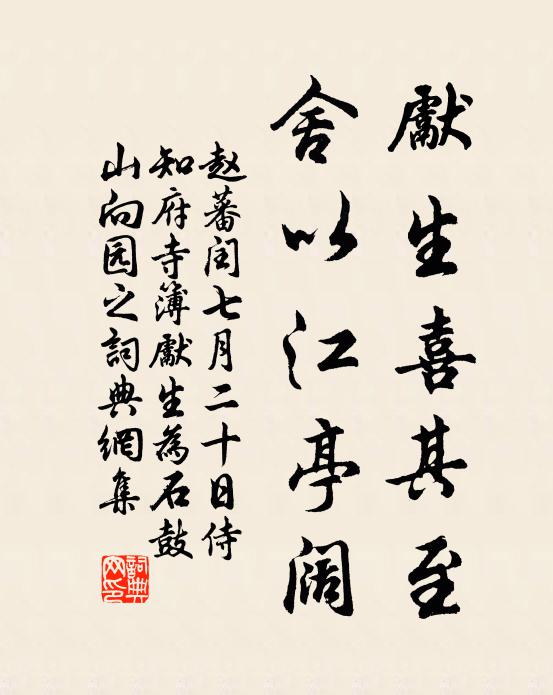 獻生喜其至
舍以江亭阔
赵蕃闰七月二十日侍
知府寺簿獻生為石鼓
山向园之詞典網集
詞典
网印